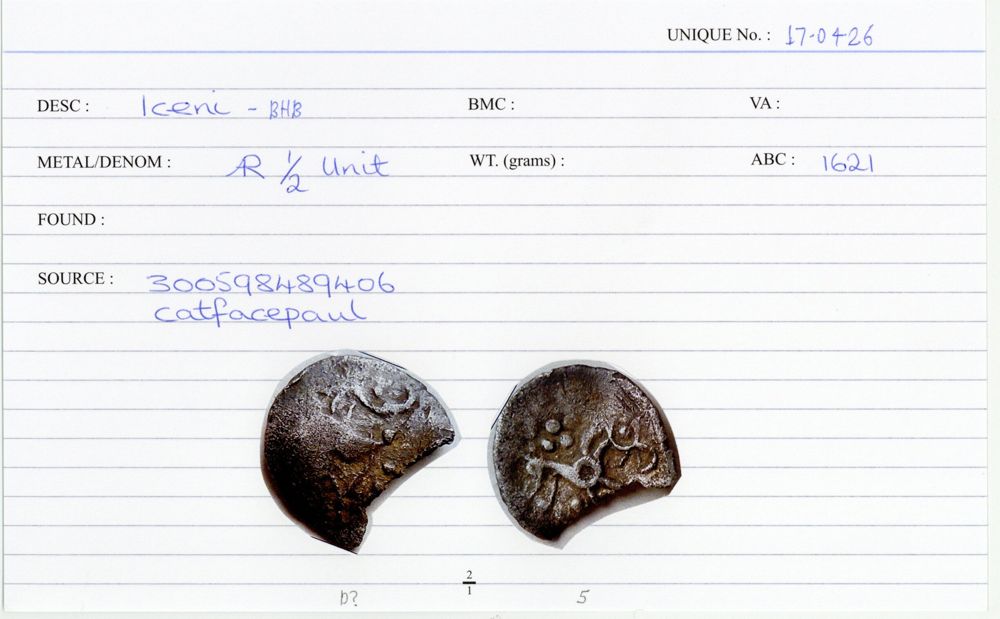 UNIQUE No. : 17-0426
DESC : Iceni - BHB BMC : VA :
METAL/DENOM : AR 1/2 Unit WT. (grams) : ABC : 1621
FOUND :
SOURCE : 300598489406
catfacepaul
2/1
b? 5